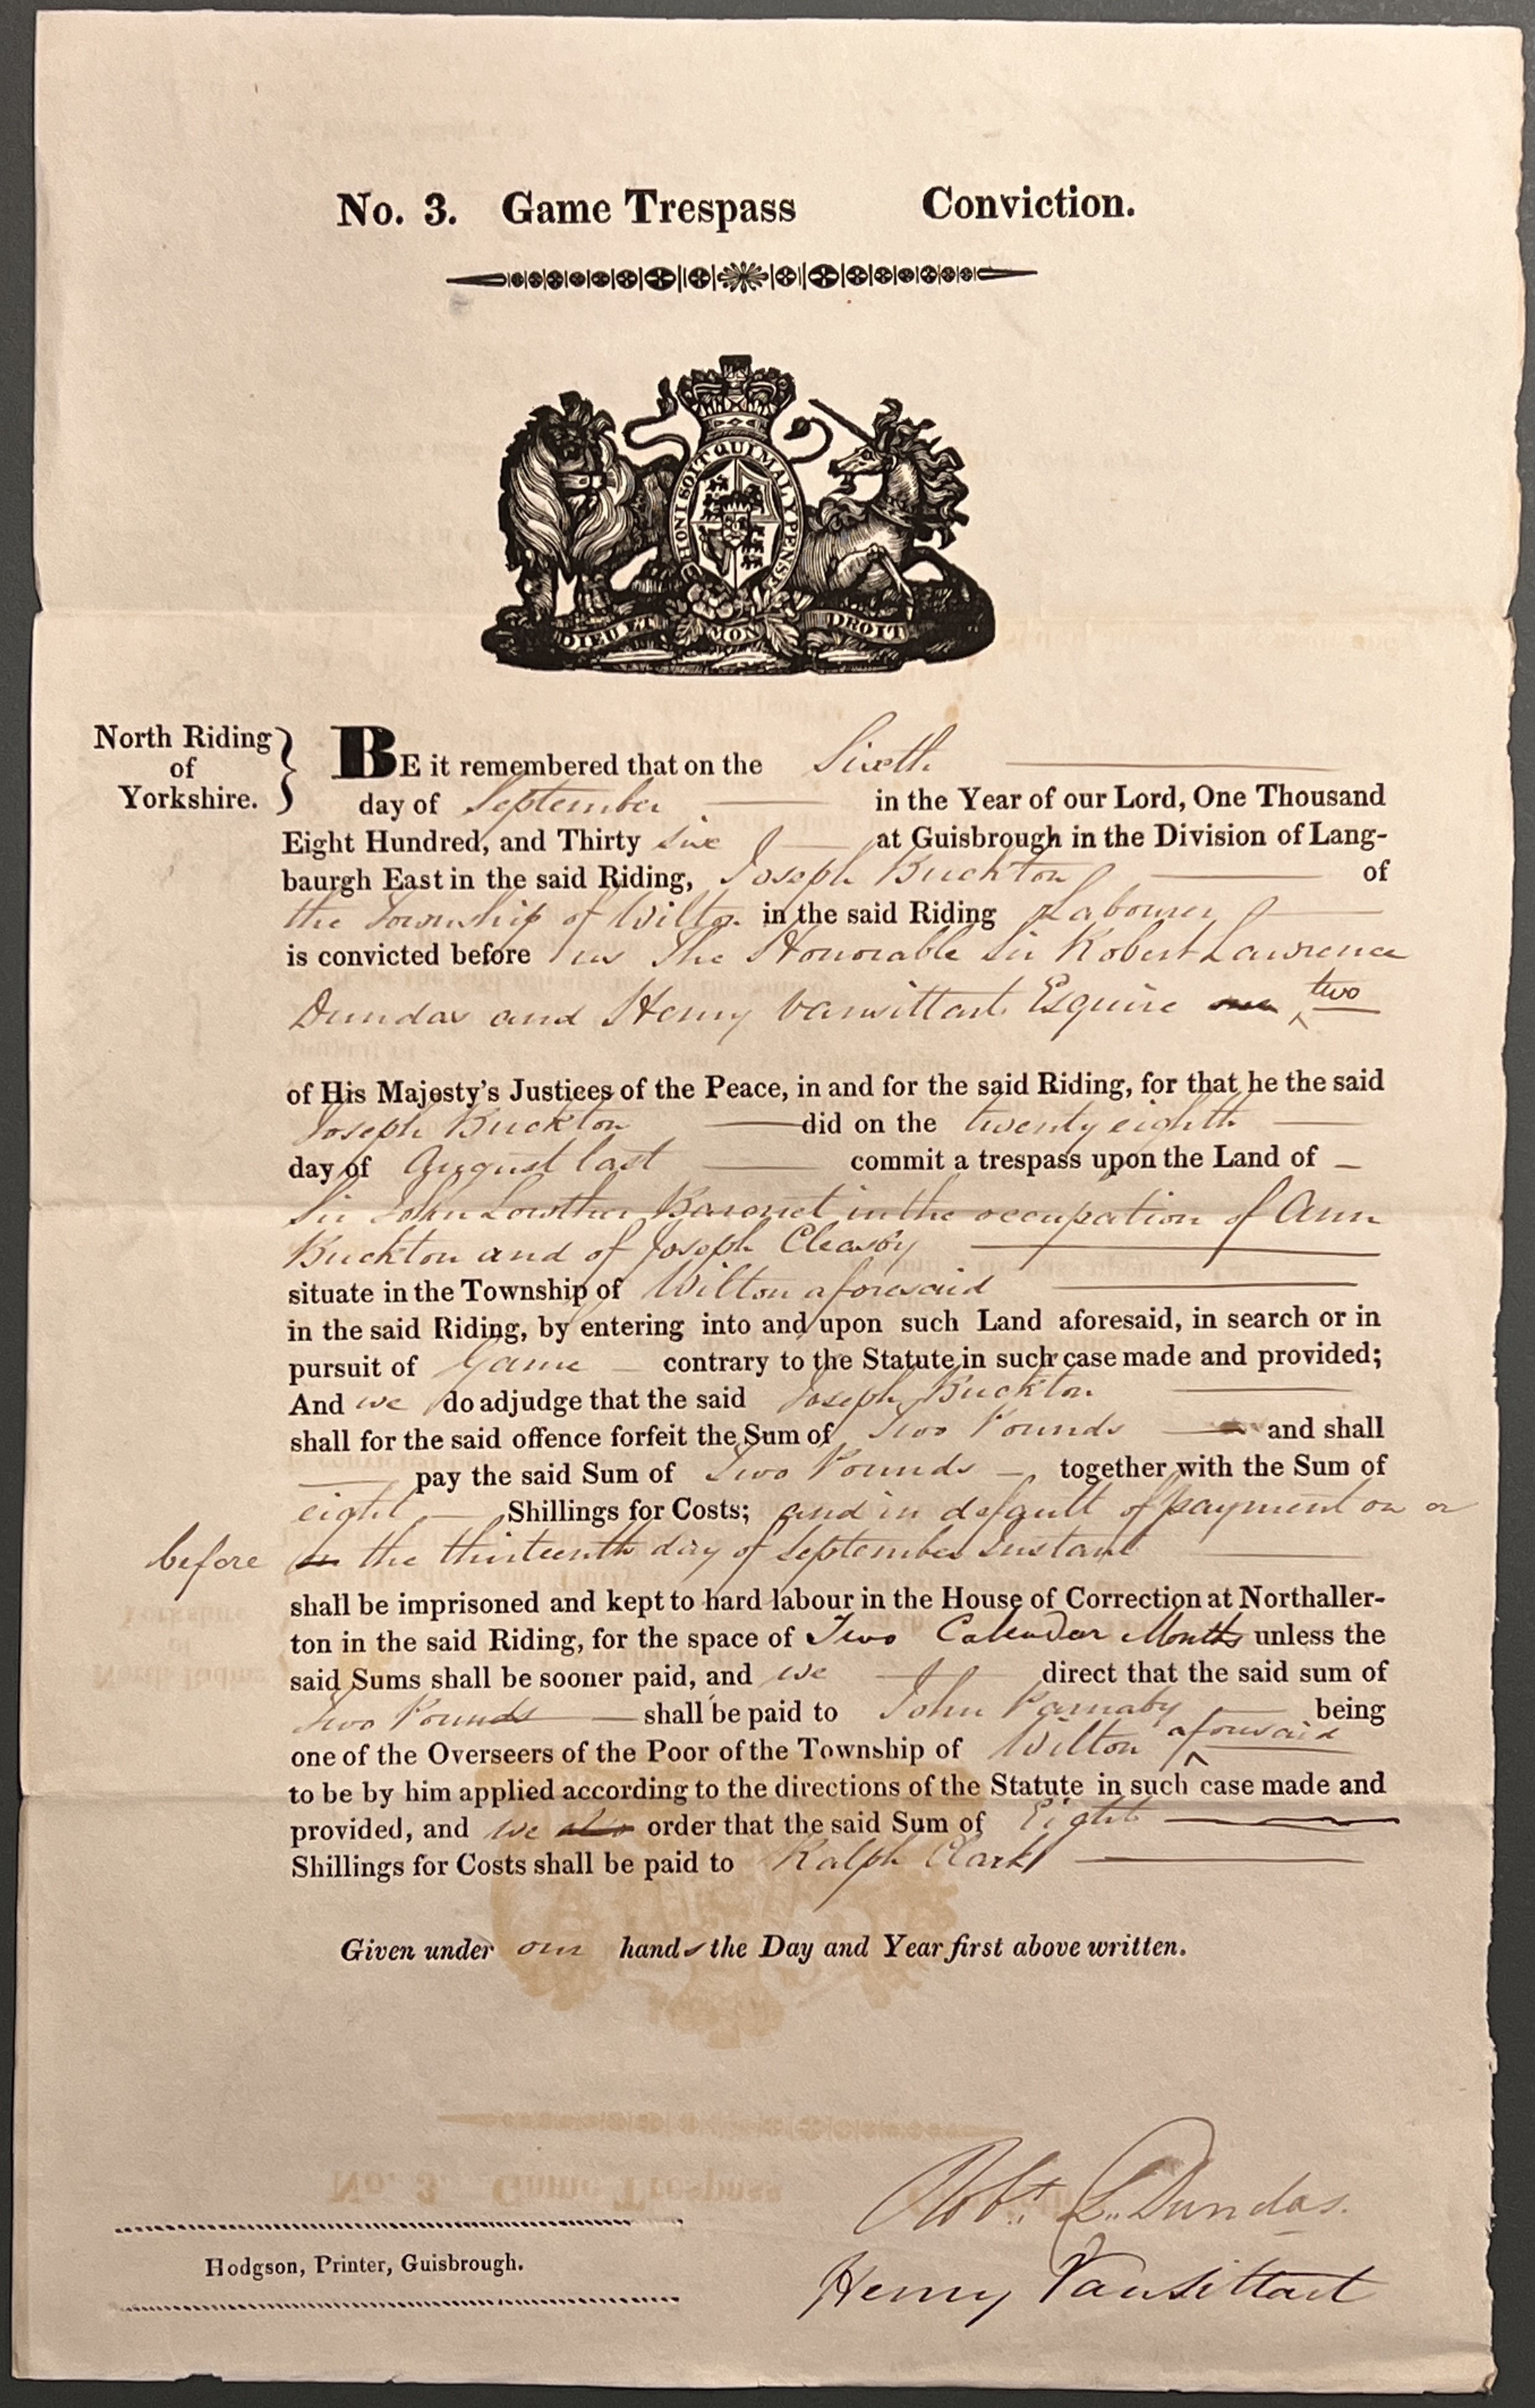 No. 3. Game Trespass Conviction.
HONI SOIT QUI MAL Y PENSE
DIEU ET MON DROIT
North Riding
of
Yorkshire.
BE it remembered that on the Sixth
day of September in the Year of our Lord, One Thousand
Eight Hundred, and Thirty six at Guisbrough in the Division of Lang-
baurgh East in the said Riding, Joseph Buckton of
the Township of Wilton in the said Riding Labourer
is convicted before us The Honorable Sir Robert Lawrence
Dundas and Henry Vansittart Esquire two
of His Majesty's Justices of the Peace, in and for the said Riding, for that he the said
Joseph Buckton did on the twenty eighth
day of August last commit a trespass upon the Land of
Sir John Lowther Baronet in the occupation of Ann
Buckton and of Joseph Cleasby
situate in the Township of Wilton aforesaid
in the said Riding, by entering into and upon such Land aforesaid, in search or in
pursuit of Game contrary to the Statute in such case made and provided;
And we do adjudge that the said Joseph Buckton
shall for the said offence forfeit the Sum of Two Pounds and shall
pay the said Sum of Two Pounds together with the Sum of
eight Shillings for Costs; and in default of payment on or
before on the thirteenth day of September Instant
shall be imprisoned and kept to hard labour in the House of Correction at Northaller-
ton in the said Riding, for the space of Two Calendar Months unless the
said Sums shall be sooner paid, and we direct that the said sum of
Two Pounds shall be paid to John Parnaby being
one of the Overseers of the Poor of the Township of Wilton aforesaid
to be by him applied according to the directions of the Statute in such case made and
provided, and we also order that the said Sum of Eight
Shillings for Costs shall be paid to Ralph Clark
Given under our hands the Day and Year first above written.
Robt. L. Dundas.
Henry Vansittart
Hodgson, Printer, Guisbrough.